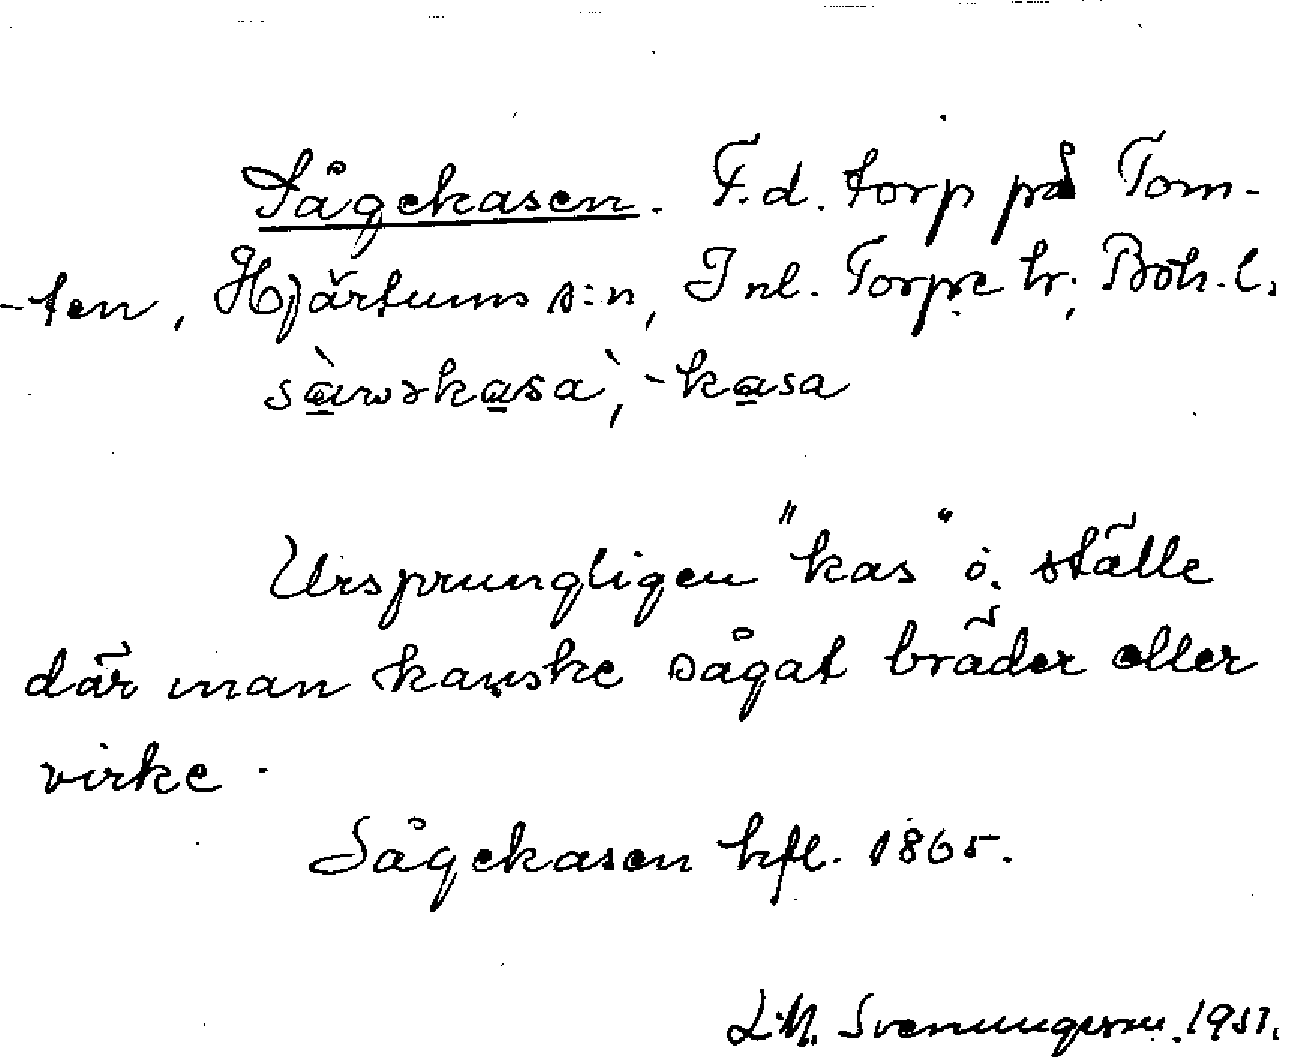 Sågekasen. F.d. torp på Tom-
-ten, Hjärtums s:n, Inl. Torpe hr, Boh. l.
sàwəkasà, -kasa
Ursprungligen "kas" å ställe
där man kanske sågat bräder eller
virke.
Sågekasen hfl. 1865.
L.M. Svenungsson. 1951.